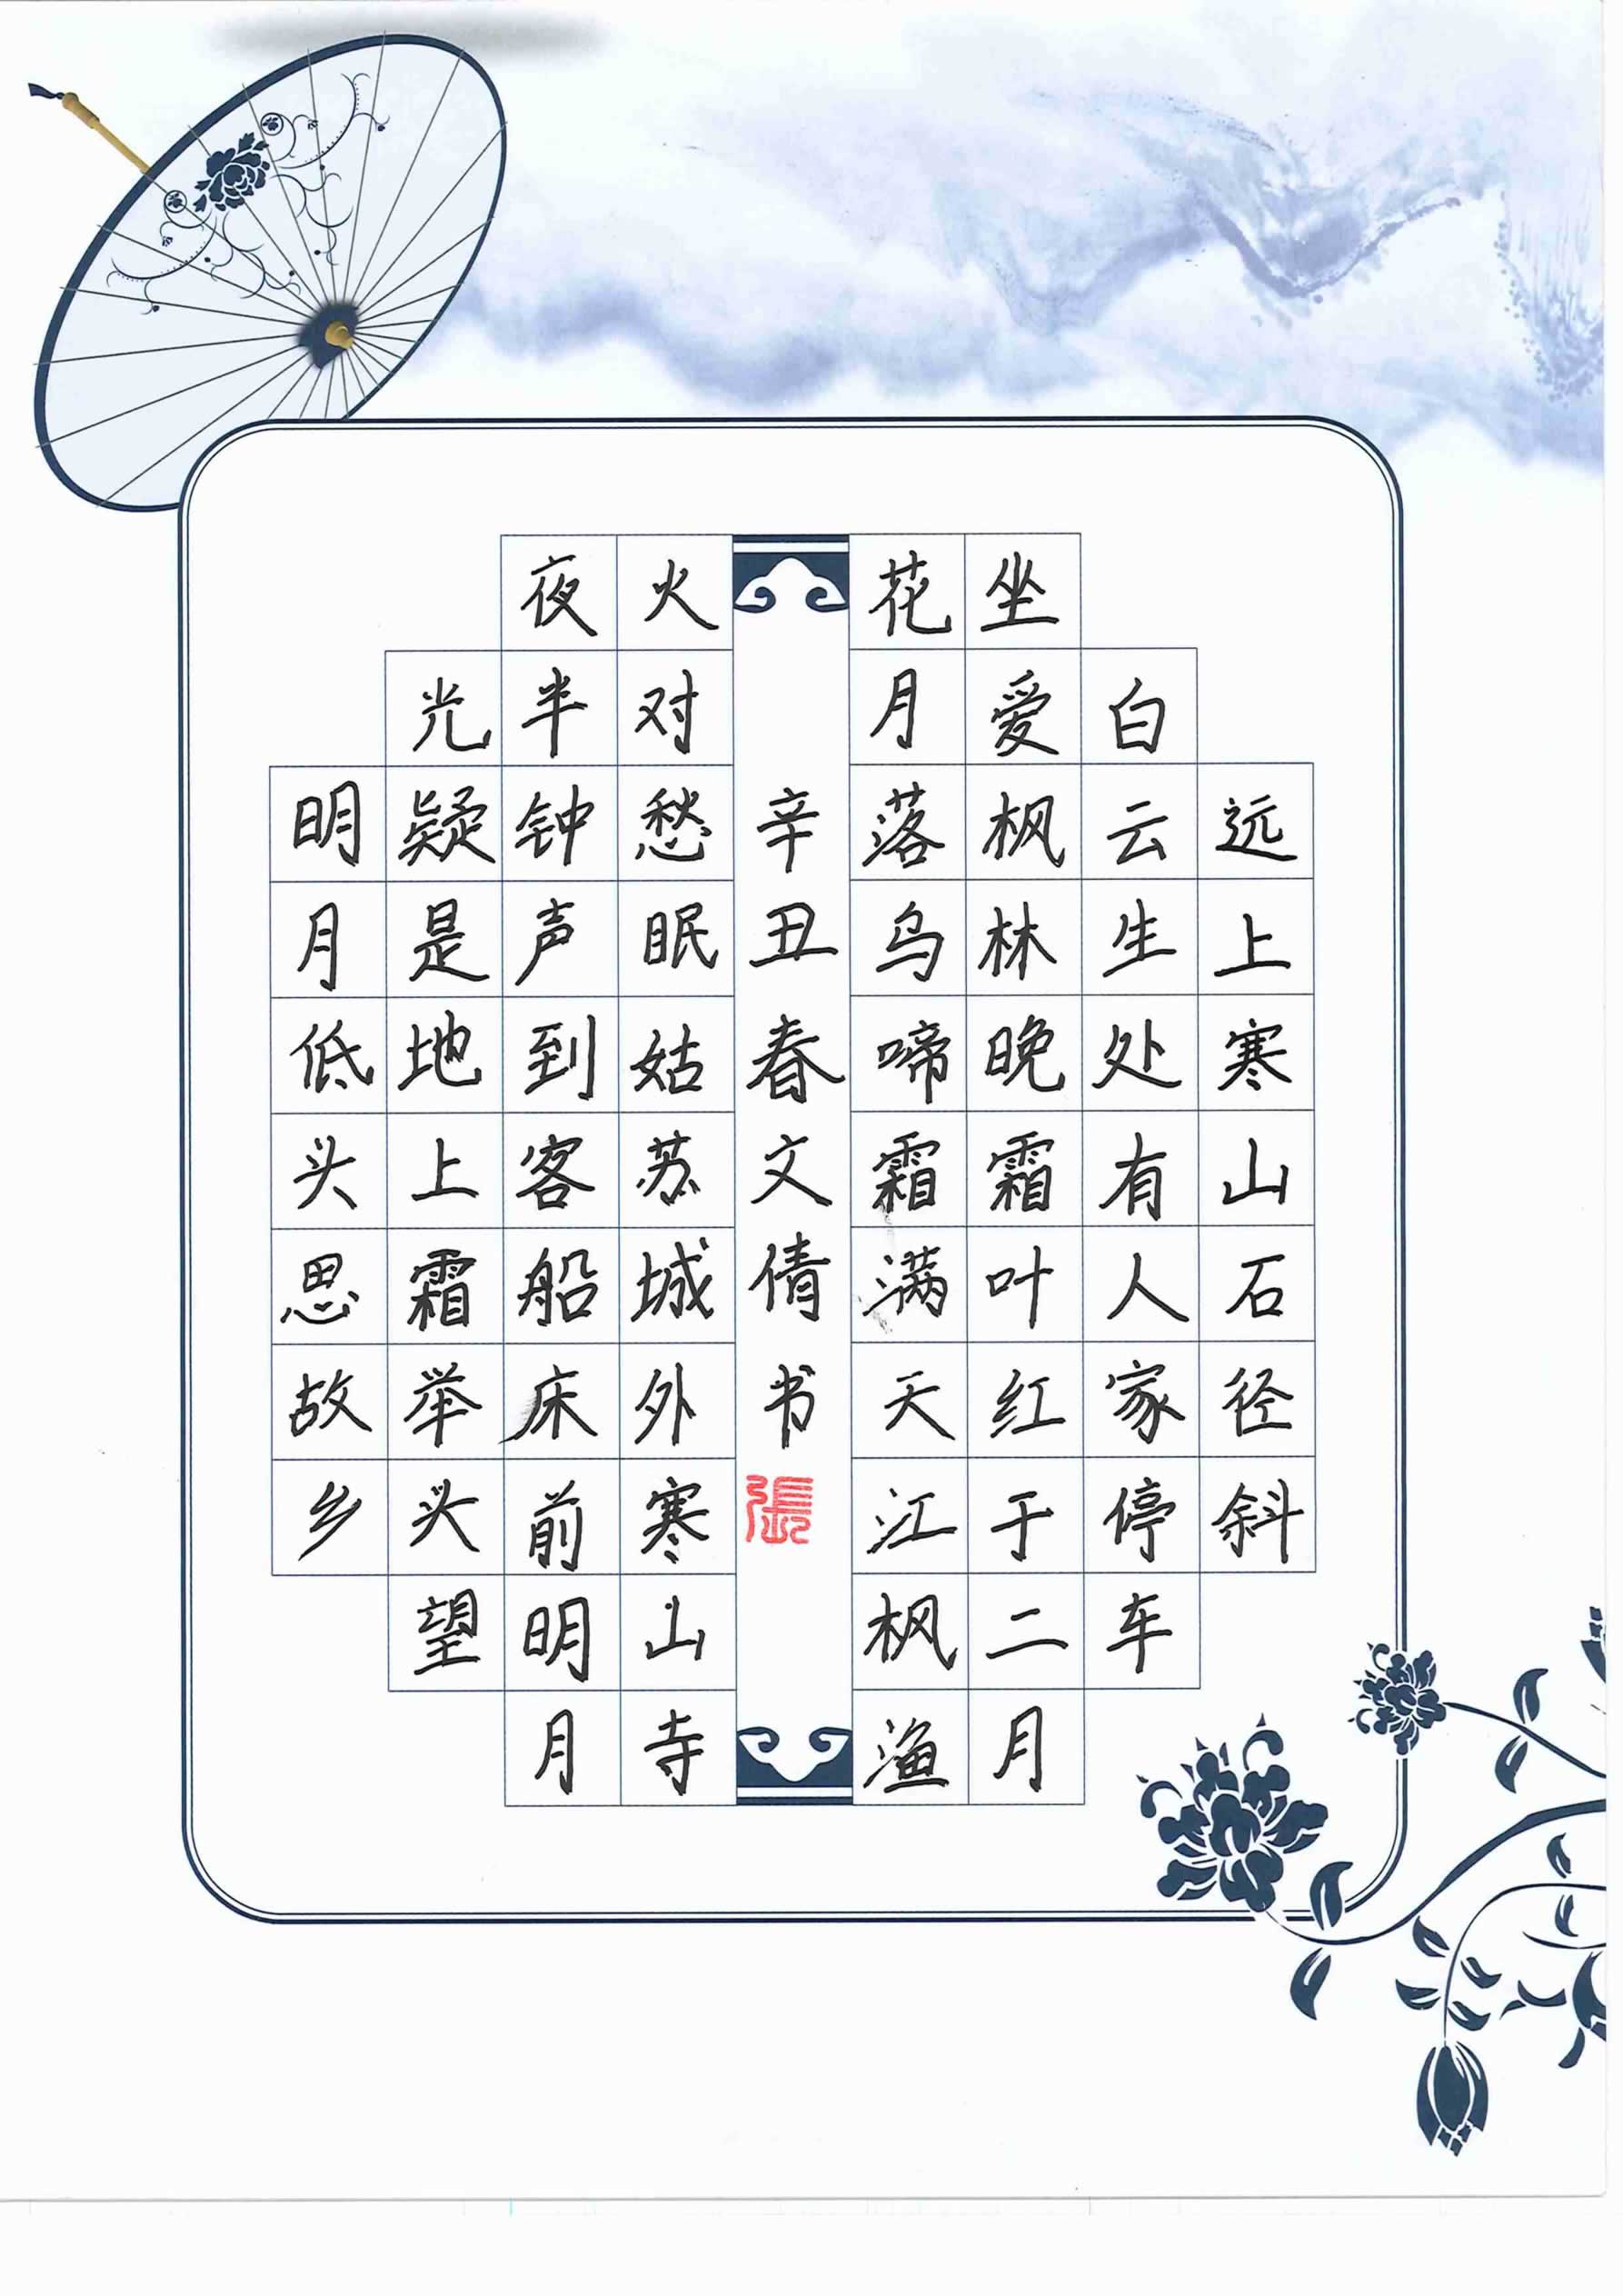 远上寒山石径斜
白云生处有人家停车
坐爱枫林晚霜叶红于二月
花月落乌啼霜满天江枫渔
辛丑春文倩书
張
火对愁眠姑苏城外寒山寺
夜半钟声到客船床前明月
光疑是地上霜举头望
明月低头思故乡